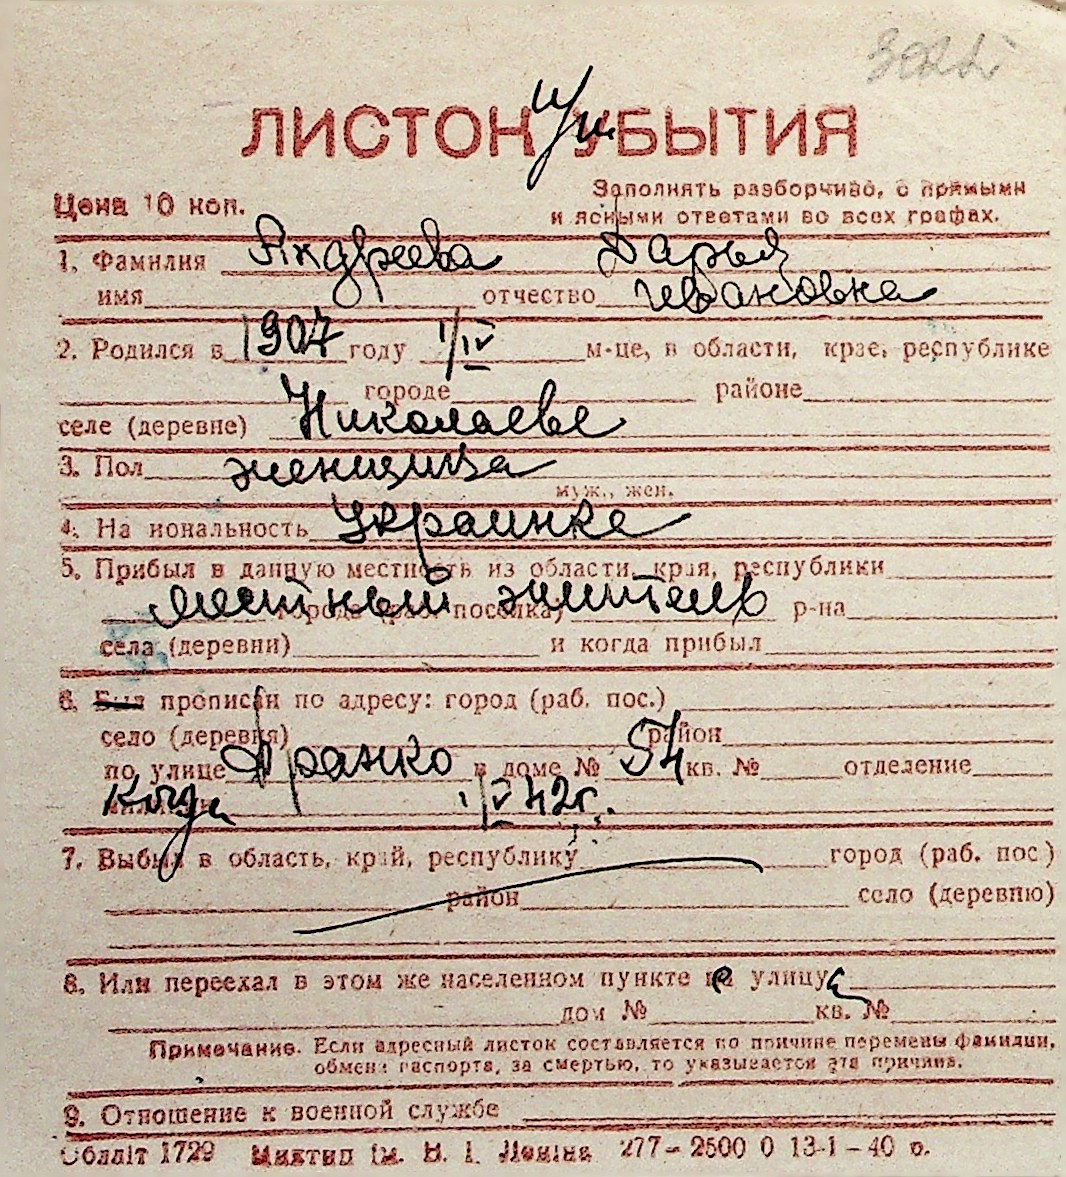 ЛИСТОН УБЫТИЯ
При
Цена 10 коп.
Заполнять разборчиво, с прямыми
и ясными ответами во всех графах.
1. Фамилия Андреева Дарья
имя отчество Ивановна
2. Родился в 1907 году 1/IV м-це, в области, крае, республике
городе районе
селе (деревне) Николаеве
3. Пол женщина
муж., жен.
4. На иональность Украинка
5. Прибыл в данную местность из области, края, республики
местный житель города (раб. поселка) р-на
села (деревни) и когда прибыл
6. Был прописан по адресу: город (раб. пос.)
село (деревня) район
по улице Франко в доме № 54 кв. № отделение
Когда 1/V 42г.
7. Выбыл в область, край, республику город (раб. пос.)
район село (деревню)
8. Или переехал в этом же населенном пункте на улицу с
дом № кв. №
Примечание. Если адресный листок составляется по причине перемены фамилии,
обмена паспорта, за смертью, то указывается эта причина.
9. Отношение к военной службе
Обллiт 1729 Миктип iм. В. I. Ленiна 277–2500 0 13-1–40 р.